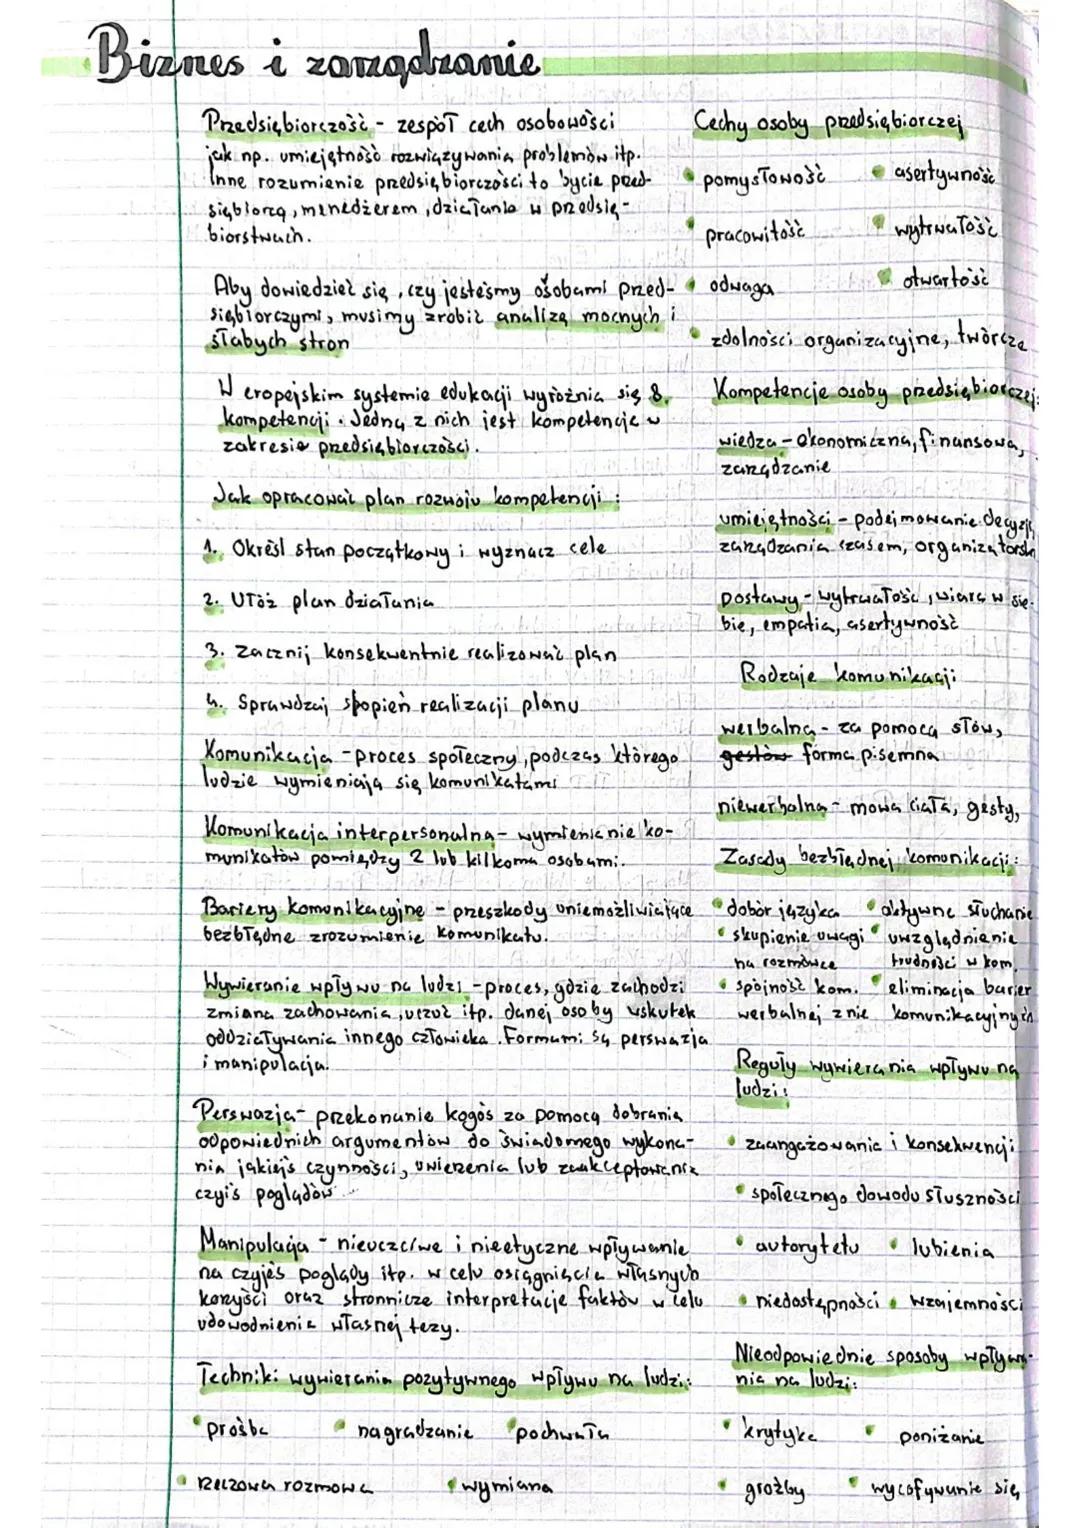 Biznes i zarządzanie
Przedsiębiorczość - zespół cech osobowości
jak np. umiejętność rozwiązywania problemów itp.
Inne rozumienie przedsiębiorczości to bycie przed-
siębiorcą, menedżerem, działania w przedsię-
biorstwach.
Aby dowiedzieć się, czy jesteśmy osobami przed-
siębiorczymi, musimy zrobić analizę mocnych i
słabych stron
W eropejskim systemie edukacji wyróżnia się 8.
kompetencji. Jedną z nich jest kompetencje w
zakresie przedsiębiorczości.
Jak opracować plan rozwoju kompetencji:
1. Określ stan początkowy i wyznacz cele
2. Ułóż plan działania
3. Zacznij konsekwentnie realizować plan
4. Sprawdzaj stopień realizacji planu
Komunikacja - proces społeczny, podczas którego
ludzie wymieniają się komunikatami
Komunikacja interpersonalna - wymienianie ko-
munikatów pomiędzy 2 lub kilkoma osobami.
Bariery komunikacyjne - przeszkody uniemożliwiające
bezbłędne zrozumienie komunikatu.
Wywieranie wpływu na ludzi - proces, gdzie zachodzi
zmiana zachowania, uczuć itp. danej osoby wskutek
oddziaływania innego człowieka. Formami są perswazja
i manipulacja.
Perswazja - przekonanie kogoś za pomocą dobrania
odpowiednich argumentów do świadomego wykona-
nia jakiejś czynności, uwierzenia lub zaakceptowania
czyiś poglądów
Manipulacja - nieuczciwe i nieetyczne wpływanie
na czyjeś poglądy itp. w celu osiągnięcia własnych
korzyści oraz stronnicze interpretacje faktów w celu
udowodnienia własnej tezy.
Techniki wywierania pozytywnego wpływu na ludzi:
• prośba • nagradzanie • pochwała
• rzeczowa rozmowa • wymiana
Cechy osoby przedsiębiorczej
• pomysłowość • asertywność
• pracowitość • wytrwałość
• odwaga • otwartość
• zdolności organizacyjne, twórcze
Kompetencje osoby przedsiębiorczej:
wiedza - ekonomiczna, finansowa,
zarządzanie
umiejętności - podejmowanie decyzji,
zarządzania czasem, organizatorskie
postawy - wytrwałość, wiara w sie-
bie, empatia, asertywność
Rodzaje komunikacji:
werbalna - za pomocą słów,
gestów forma pisemna
niewerbalna - mowa ciała, gesty,
Zasady bezbłędnej komunikacji:
• dobór języka • aktywne słuchanie
• skupienie uwagi • uwzględnienie
na rozmówce trudności w kom.
• spójność kom. • eliminacja barier
werbalnej z nie komunikacyjnych
Reguły wywierania wpływu na
ludzi:
• zaangażowania i konsekwencji
• społecznego dowodu słuszności
• autorytetu • lubienia
• niedostępności • wzajemności
Nieodpowiednie sposoby wpływa-
nia na ludzi:
• krytyka • poniżanie
• groźby • wycofywanie się